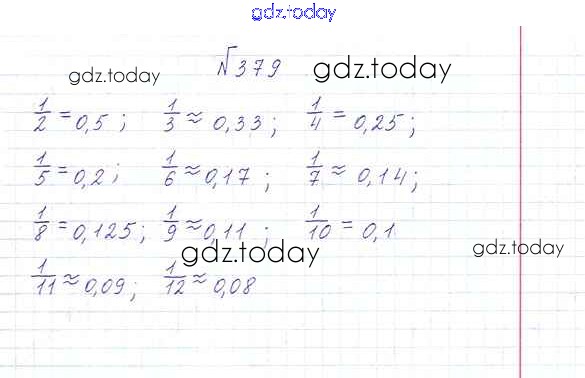 gdz.today
gdz.today №379 gdz.today
1/2 = 0,5 ; 1/3 ≈ 0,33 ; 1/4 = 0,25 ;
1/5 = 0,2 ; 1/6 ≈ 0,17 ; 1/7 ≈ 0,14 ;
1/8 = 0,125 ; 1/9 ≈ 0,11 ; 1/10 = 0,1
gdz.today gdz.today
1/11 ≈ 0,09 ; 1/12 ≈ 0,08